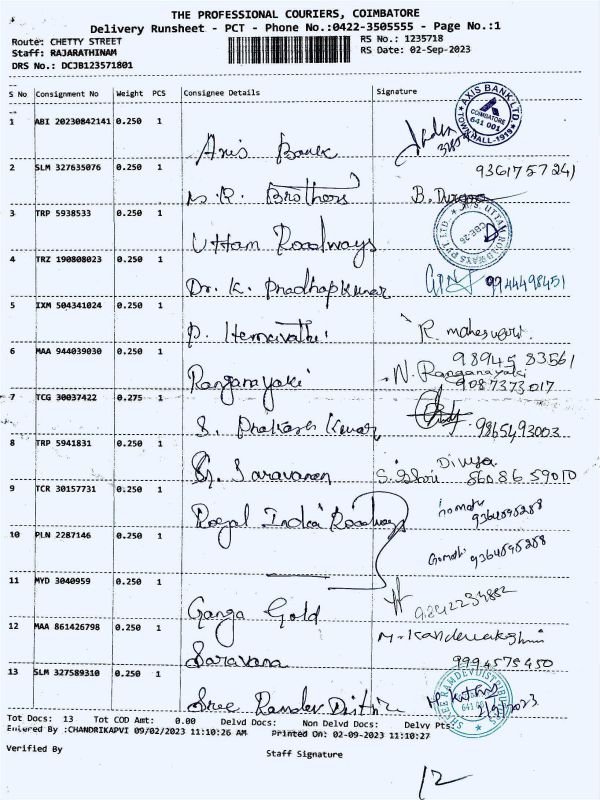 THE PROFESSIONAL COURIERS, COIMBATORE
Delivery Runsheet - PCT - Phone No.:0422-3505555 - Page No.:1
Route: CHETTY STREET
RS No.: 1235718
Staff: RAJARATHINAM
RS Date: 02-Sep-2023
DRS No.: DCJB123571801
S No Consignment No Weight PCS Consignee Details Signature
AXIS BANK LTD
COIMBATORE
641 001
TOWNHALL-1919
1 ABI 20230842141 0.250 1
Axis Bank
2 SLM 327635076 0.250 1 9361757241
R. Brothers B. Durga
3 TRP 5938533 0.250 1
UTTAM ROADWAYS PVT LTD
CBE-26
Uttam Roadways
4 TRZ 190808023 0.250 1
Dr. K. Pradhap Kumar 9944498451
5 IXM 504341024 0.250 1
P. Hemavathi R. maheswari.
6 MAA 944039030 0.250 1 98945 83561
Ranganayaki N. Ranganayaki
9087373017
7 TCG 30037422 0.275 1
S. Prakash Kumar 9865493003
8 TRP 5941831 0.250 1 Divya
Saravanan 86086 59010
9 TCR 30157731 0.250 1
Royal India Roadways 9364595288
10 PLN 2287146 0.250 1
Gomathi 9364595288
11 MYD 3040959 0.250 1
Ganga Gold
12 MAA 861426798 0.250 1
Saravana 9994579450
13 SLM 327589310 0.250 1
Sree Ramdev
2/9/2023
Tot Docs: 13 Tot COD Amt: 0.00 Delvd Docs: Non Delvd Docs: Delvy Pts:
Entered By :CHANDRIKAPVI 09/02/2023 11:10:26 AM Printed On: 02-09-2023 11:10:27
Verified By
Staff Signature
12